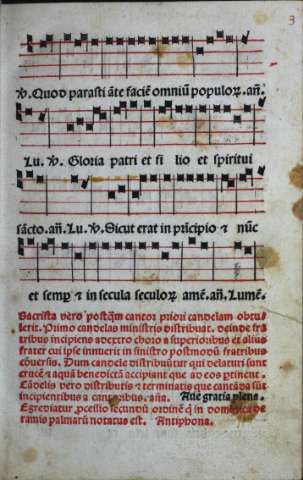 3
℣. Quod parasti āte faciē omniū populoꝝ. añ.
Lu. ℣. Gloria patri et fi lio et spiritui
sācto. añ. Lu. ℣. Sicut erat in prīcipio ⁊ nūc
et semꝑ ⁊ in secula seculoꝝ amē. añ. Lumē.
Sacrista vero postꝗ̄ cantor priori candelam obtu
lerit. Primo candelas ministris distribuat. deinde fra
tribus incipiens a dextro choro a superioribus et alius
frater cui ipse innuerit in sinistro postmodū fratribus
cōuersis. Dum candele distribuūtur qui delaturi sunt
crucē ⁊ aquā benedictā accipiant que ad eos ꝑtinent.
Cādelis vero distributis ⁊ terminatis que cantāda sūt
incipientibus a cantoribus. aña. Aue gratia plena.
Egrediatur ꝓcessio secundū ordinē ꝗ in dominica de
ramis palmarū notatus est. Antiphona.